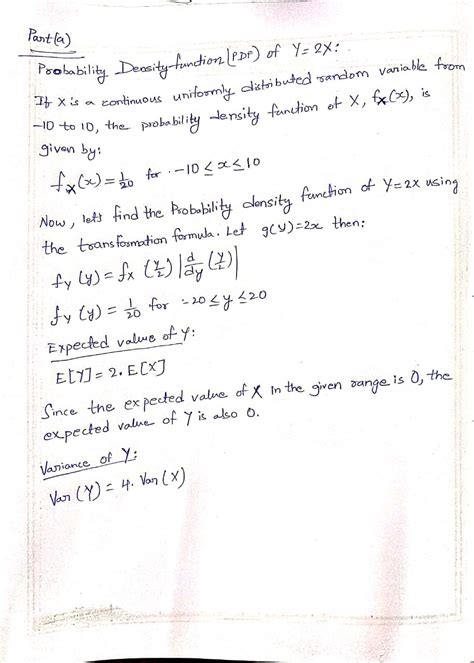 Part(a)
Probability Density function (PDF) of Y=2X:
If X is a continuous uniformly distributed random variable from
-10 to 10, the probability density function of X, fx(x), is
given by:
fx(x) = 1/20 for -10 ≤ x ≤ 10
Now, lets find the Probability density function of Y=2X using
the transformation formula. Let g(y)=2x then:
fy(y) = fx (y/2) |d/dy (y/2)|
fy(y) = 1/20 for -20 ≤ y ≤ 20
Expected value of Y:
E[Y] = 2. E[X]
Since the expected value of X in the given range is 0, the
expected value of Y is also 0.
Variance of Y:
Var(Y) = 4. Var(X)